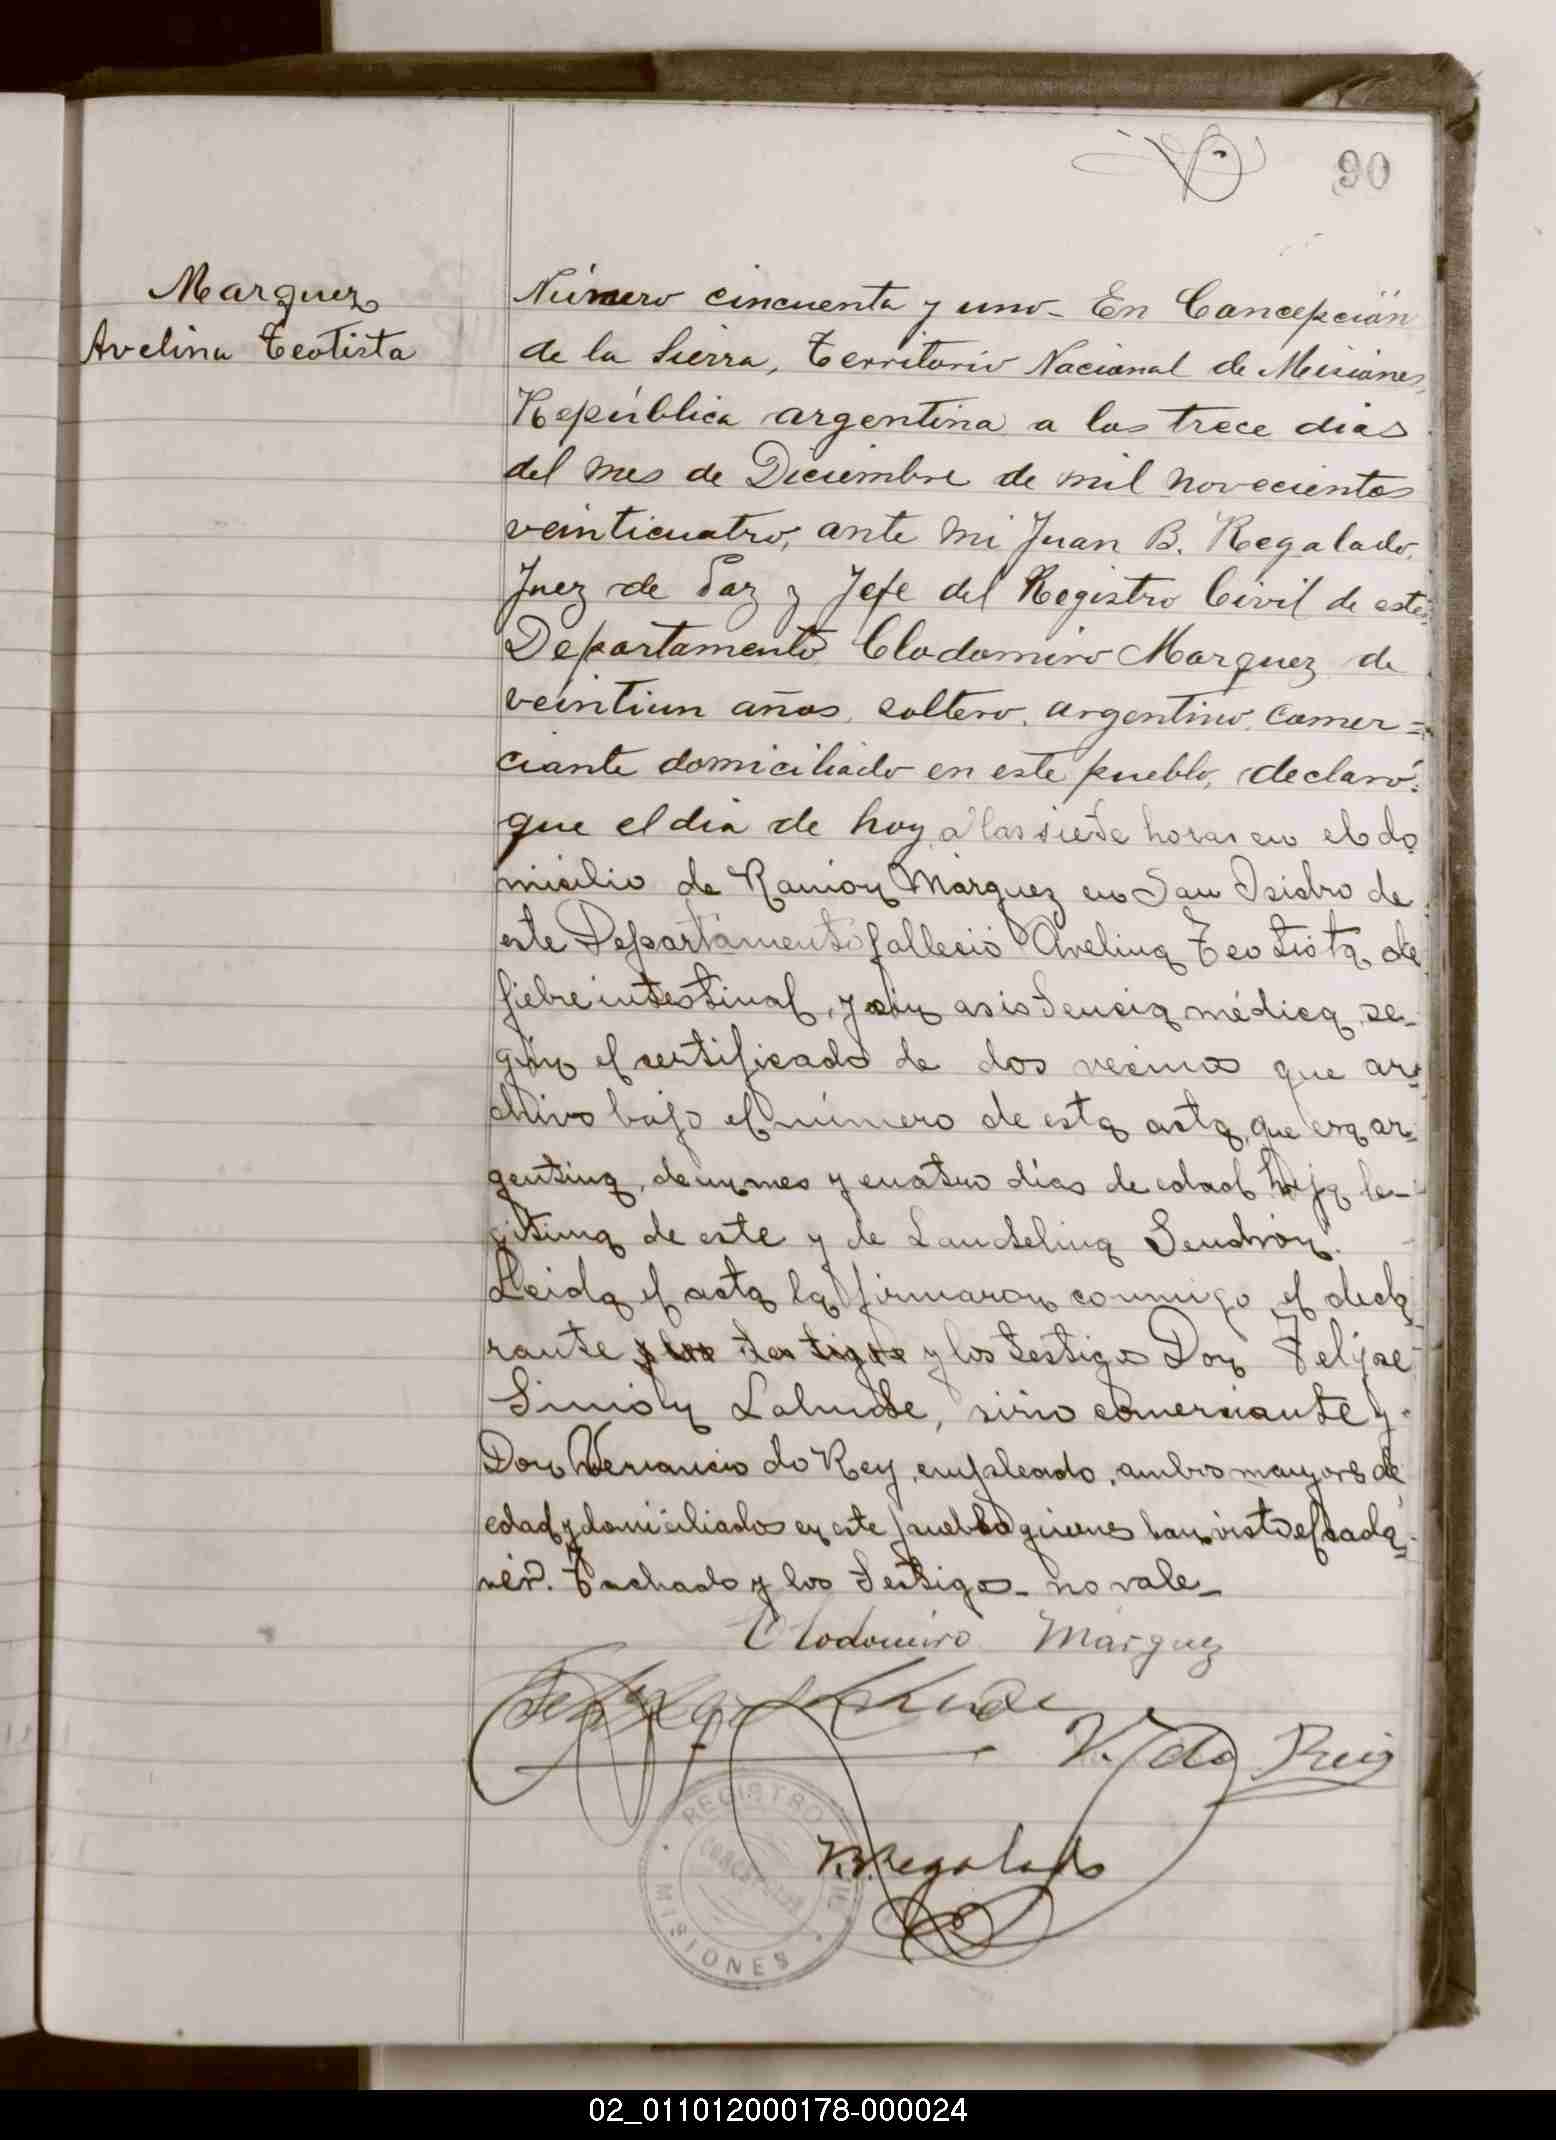 90
Marquez
Avelina Teotista
Número cincuenta y uno - En Concepción
de la Sierra, Territorio Nacional de Misiones,
República argentina a los trece dias
del mes de Diciembre de mil novecientos
veinticuatro, ante mi Juan B. Regalado,
Juez de Paz y Jefe del Registro Civil de este
Departamento Clodomiro Marquez de
veintiun años, soltero, argentino, comer=
ciante domiciliado en este pueblo, declaró:
que el dia de hoy a las siete horas en el do
micilio de Ramón Márquez en San Isidro de
este Departamento falleció Avelina Teotista de
fiebre intestinal, y sin asistencia médica, se-
gún el certificado de dos vecinos que ar=
chivo bajo el número de esta acta, que era ar=
gentina, de un mes y cuatro días de edad hija le-
gitima de este y de Landelina Sendrón.
Leida el acta la firmaron conmigo el decla
rante y los testigos y los testigos Don Felipe
Simón Lahude, sirio comerciante y
Don Venancio do Rey, empleado, ambos mayores de
edad y domiciliados en este pueblo quienes han visto el cadá=
ver. Tachado y los testigos - no vale -
Clodomiro Márquez
V. do Rey
Regalado
REGISTRO
MISIONES
02_011012000178-000024